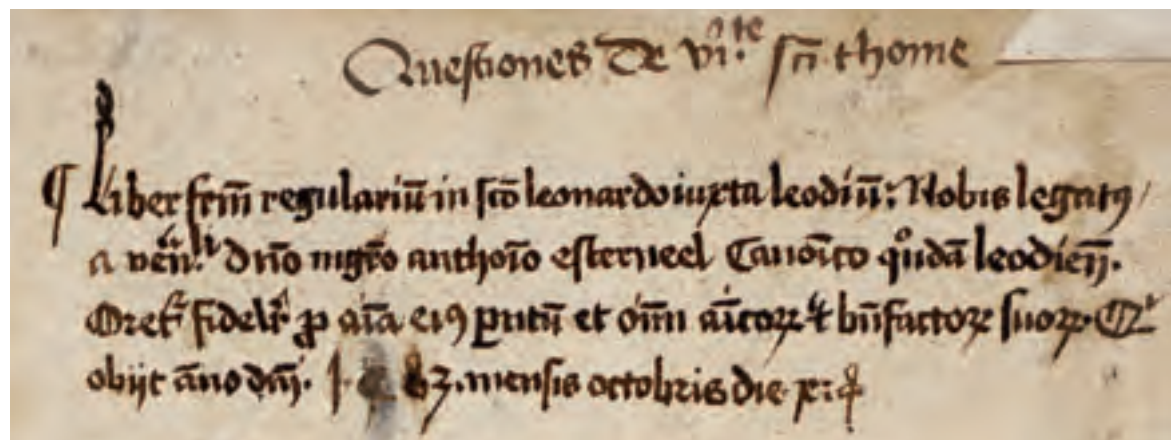 Questiones de vi.te scī thome
¶ Liber frm̄ regulariū in sc̄o leonardo iuxta leodiū: Nobis legatꝰ
a vēn.li dn̄o mgr̄o anthoīo esterneel Canoīco qͦndā leodień.
Oret' fidelr̄ ꝓ aīa eiꝰ ꝑntū et oīm aīcoꝝ ⁊ bn̄factoꝝ suoꝝ. Qi
obijt āno dn̄j. mensis octobris die x:ª